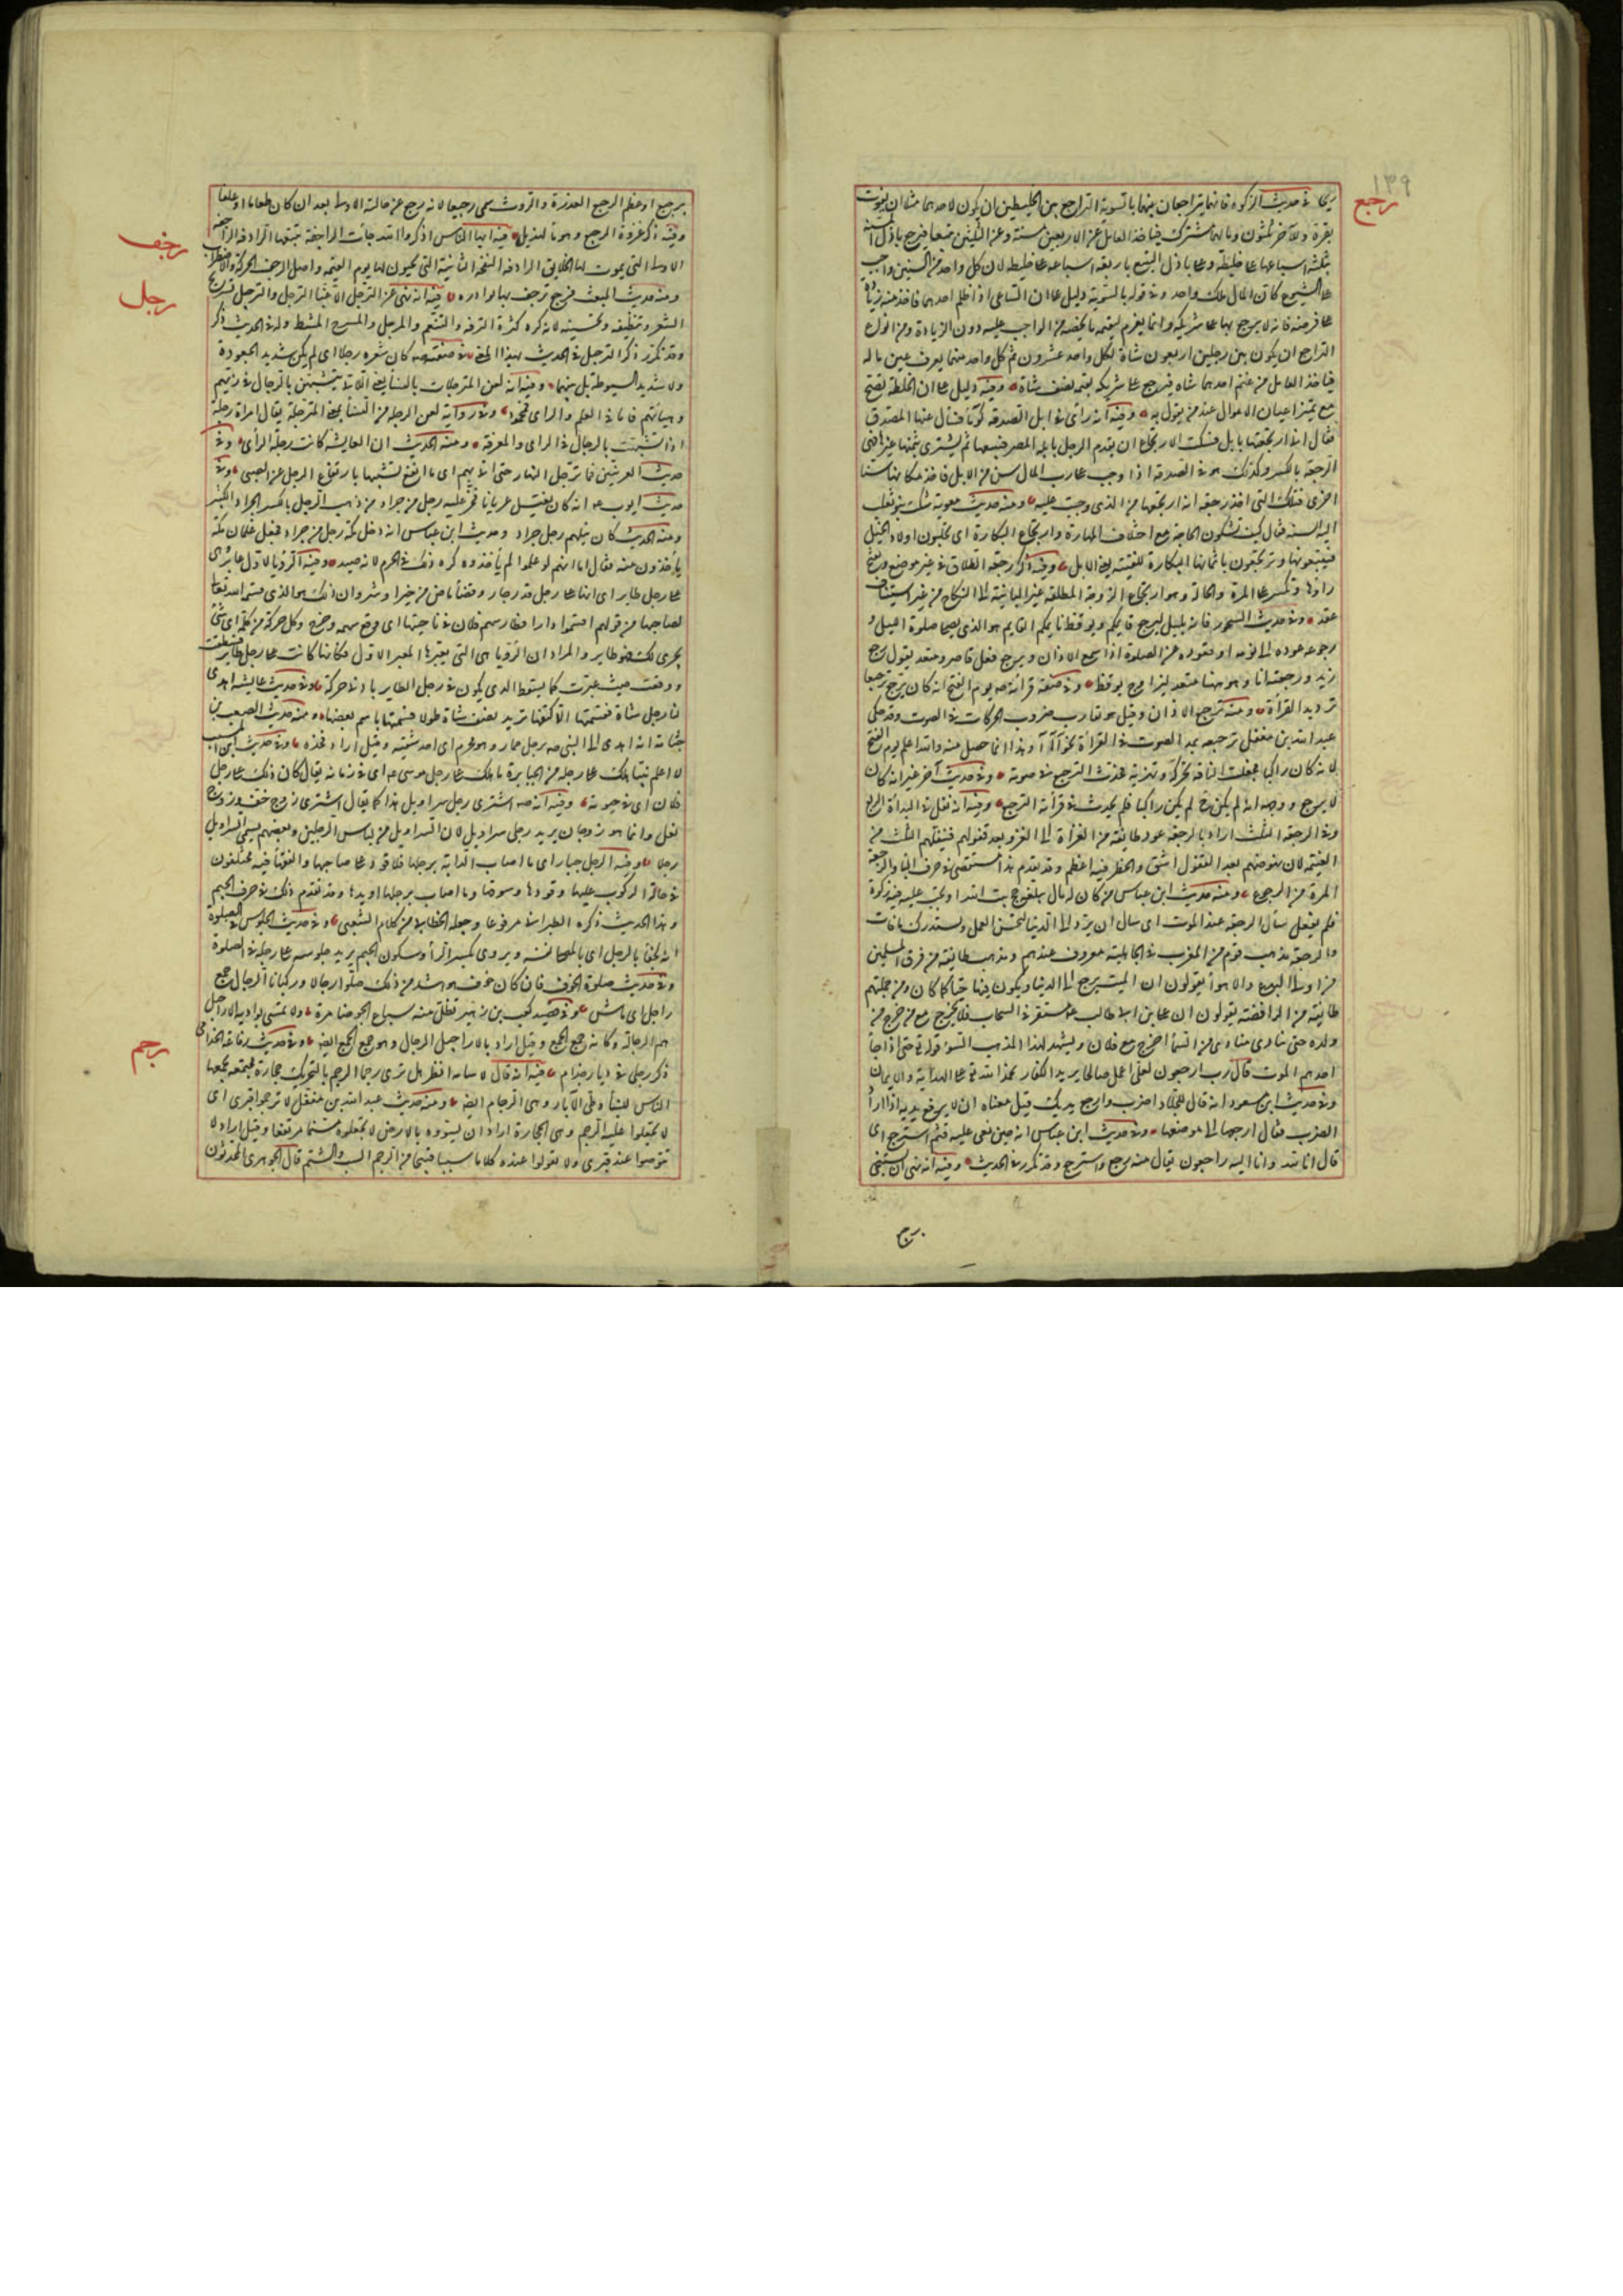 ١٣٩
رجع
بقرة وللآخر ثلثون ومالهما مشترك فياخذ العامل عن الاربعين مسنة وعن الثلثين تبيعا فيرجع باذل المسنة
بثلثة اسباعها على خليطه وعلى باذل التبيع باربعة اسباعه على خليطه لان كل واحد من السنين واجب
على الشيوع كان المال ملك واحد وفي قوله بالسوية دليل على ان الساعي اذا ظلم احدهما فاخذ منه زيادة
على فرضه فانه لا يرجع بها على شريكه وانما يغرم له قيمة ما يخصه من الواجب عليه دون الزيادة ومن انواع
التراجع ان يكون بين رجلين اربعون شاة لكل واحد عشرون ثم كل واحد منهما يعرف عين ماله
فياخذ العامل من غنم احدهما شاة فيرجع على شريكه بقيمة نصف شاة وفيه دليل على ان الخلطة تصح
مع تميز اعيان الاموال عند من يقول به وفيه انه راى في ابل الصدقة ناقة كوماء فسال عنها المصدق
فقال اني ارتجعتها بابل فسكت الارتجاع ان يقدم الرجل بابله المصر فيبيعها ثم يشتري بثمنها غيرها فهي
الرجعة بالكسر وكذلك هو في الصدقة اذا وجب على رب المال سن من الابل فاخذ مكانها سنا
اخرى فتلك التي اخذ رجعة لانه ارتجعها من الذي وجبت عليه ومنه حديث معوية شكت بنو تغلب
اليه السنة فقال كيف تشكون الحاجة مع اجتلاب المهارة وارتجاع البكارة اى تجلبون اولاد الخيل
فتبيعونها وترتجعون باثمانها البكارة للقنية يعني الابل وفيه ذكر رجعة الطلاق في غير موضع وتفتح
راؤها وتكسر على المرة والحالة وهو ارتجاع الزوجة المطلقة غير البائنة الى النكاح من غير استيناف
عقد وفي حديث السحور فانه يؤذن بليل ليرجع قايمكم ويوقظ نايمكم القايم هو الذي يصلى صلوة الليل و
رجوعه عوده الى نومه او قعوده عن الصلوة اذا سمع الاذان ويرجع فعل قاصر ومتعد يقول رجع
زيد ورجعته انا وهو ههنا متعد ليزاوج يوقظ وفي صفة قرائته صه يوم الفتح انه كان يرجع الترجيع
ترديد القراءة ومنه ترجيع الاذان وقيل هو تقارب ضروب الحركات في الصوت وقد حكى
عبد الله بن مغفل ترجيعه بمد الصوت في القراءة نحو آ آ آ وهذا انما حصل منه والله اعلم يوم الفتح
لانه كان راكبا فجعلت الناقة تحركه وتنزيه فحدث الترجيع في صوته وفي حديث آخر غير انه كان
لا يرجع ووجهه انه لم يكن ح راكبا فلم يحدث في قرائته الترجيع وفيه انه نفل في البدأة الربع
وفي الرجعة الثلث اراد بالرجعة عود طايفة من الغزاة الى الغزو بعد قفولهم فينفلهم الثلث من
الغنيمة لان نهوضهم بعد القفول اشق والخطر فيه اعظم وقد تقدم هذا مستقصى في حرف الباء والرجعة
المرة من الرجوع ومنه حديث ابن عباس من كان له مال يبلغه حج بيت الله او تجب عليه فيه زكوة
فلم يفعل سأل الرجعة عند الموت اى سال ان يرد الى الدنيا ليحسن العمل ويستدرك ما فات
والرجعة مذهب قوم من العرب في الجاهلية معروف عندهم ومذهب طايفة من فرق المسلمين
من اولى البدع والاهواء يقولون ان الميت يرجع الى الدنيا ويكون فيها حيا كما كان ومن جملتهم
طايفة من الرافضة يقولون ان على بن ابي طالب ع مستتر في السحاب فلا يخرج مع من خرج من
ولده حتى ينادي مناد من السماء اخرج مع فلان ويشهد لهذا المذهب السوء قوله تع حتى اذا جاء
احدهم الموت قال رب ارجعون لعلى اعمل صالحا يريد الكفار نحمد الله تع على الهداية والايمان
وفي حديث ابن مسعود انه قال للجلاد اضرب وارجع يديك قيل معناه ان لا يرفع يديه اذا اراد
الضرب فقال ارجعها الى موضعها وفي حديث ابن عباس انه حين نعى عليه قثم استرجع اى
قال انا لله وانا اليه راجعون يقال منه رجع واسترجع وقد تكرر في الحديث وفيه انه نهى ان يستنجى
برجيع او عظم الرجيع العذرة والروث سمى رجيعا لانه رجع عن حالته الاولى بعد ان كان طعاما او علفا
وفيه ذكر غزوة الرجيع وهو ماء لهذيل فيه ايها الناس اذكروا الله جاءت الراجفة تتبعها الرادفة الراجفة
رجف
الاولى التي يموت لها الخلايق الرادفة النفخة الثانية التي يحيون لها يوم القيمة واصل الرجف الحركة والاضطراب
ومنه حديث المبعث فرجع ترجف بها بوادره فيه انه نهى عن الترجل الا غبا الترجل والترجيل تسريح
رجل
الشعر وتنظيفه وتحسينه كانه كره كثرة الترفه والتنعم والمرجل والمسرح المشط وله في الحديث ذكر
وقد تكرر ذكر الترجل في الحديث بهذا المعنى وفي صفته صه كان شعره رجلا اى لم يكن شديد الجعودة
ولا شديد السبوطة بل بينهما وفيه انه لعن المترجلات من النساء يعني اللاتي يتشبهن بالرجال في زيهم
وهيأتهم فاما في العلم والراى فمحمود وفي رواية لعن الرجلة من النساء بمعنى المترجلة يقال امراة رجلة
اذا تشبهت بالرجال في الراى والمعرفة ومنه الحديث ان العايشة كانت رجلة الرأى وفي
حديث العرنيين فما ترجل النهار حتى اتى بهم اى ما ارتفع تشبيها بارتفاع الرجل عن الصبى وفي
حديث ايوب ع انه كان يغتسل عريانا فخر عليه رجل من جراد من ذهب الرجل بالكسر الجراد الكثير
ومنه الحديث كان نبلهم رجل جراد وحديث ابن عباس انه دخل مكة رجل من جراد فجعل غلمان مكة
يأخذون منه فقال اما انهم لو علموا لم يأخذوه كره ذلك في الحرم لانه صيد وفيه الرؤيا لاول عابر وهى
على رجل طاير اى انها على رجل قدر جار وقضاء ماض من خير او شر وان ذلك هو الذي قسمه الله تعالى
لصاحبها من قولهم اقتسموا دارا فطار سهم فلان في ناحيتها اى وقع سهمه وخرج وكل حركة من كلمة او شئ
يجرى لك فهو طاير والمراد ان الرؤيا هى التي يعبرها المعبر الاول فكانها كانت على رجل طاير فسقطت
ووقعت حيث عبرت كما يسقط الذي يكون على رجل الطاير بادنى حركة وفي حديث عايشة اهدى
لنا رجل شاة فقسمتها الا كتفها تريد نصف شاة طولا فسمتها باسم بعضها ومنه حديث الصعب بن
جثامة انه اهدى الى النبى صه رجل حمار وهو محرم اى احد شقيه وقيل اراد فخذه وفي حديث ابن المسيب
لا اعلم نبيا هلك على رجله من الجبابرة ما هلك على رجل موسى ع اى في زمانه يقال كان ذلك على رجل
فلان اى في حيوته وفيه انه صه اشترى رجل سراويل هذا كما يقال اشترى زوج خف وزوج
نعل وانما هو زوجان يريد رجلى سراويل لان السراويل من لباس الرجلين وبعضهم يسمى السراويل
رجلا وفيه الرجل جبار اى ما اصاب الدابة برجلها فلا قود على صاحبها والفقهاء فيه مختلفون
في حالة الركوب عليها وقودها وسوقها وما اصاب برجلها او يدها وقد تقدم ذلك في حرف الجيم
وهذا الحديث ذكره الطبراني مرفوعا وجعله الخطابي من كلام الشعبى وفي حديث الجلوس في الصلوة
انه لجفاء بالرجل اى بالمصلى نفسه ويروى بكسر الراء وسكون الجيم يريد جلوسه على رجله في الصلوة
وفي حديث صلوة الخوف فان كان خوف هو اشد من ذلك صلوا رجالا وركبانا الرجال جمع
راجل اى ماش وفي قصيد كعب بن زهير تظل منه سباع الجو ضامزة ولا تمشى بواديه الاراجيل
هم الرجالة وكانه جمع الجمع وقيل اراد بالاراجيل الرجال وهو جمع الجمع ايضا وفي حديث رفاعة الجذامى
ذكر رجلى في ديار جذام فيه انه قال لاسامة انظر هل ترى رجما الرجم بالتحريك حجارة مجتمعة يجمعها
رجم
الناس للبناء وطى الآبار وهى الرجام ايضا ومنه حديث عبد الله بن مغفل لا ترجموا قبرى اى
لا تجعلوا عليه الرجم وهى الحجارة اراد ان يسووه بالارض لا يجعلوه مسنما مرتفعا وقيل اراد لا
تنوحوا عند قبرى ولا تقولوا عنده كلاما سيئا قبيحا من الرجم السب والشتم قال الجوهرى المحدثون
برجيع